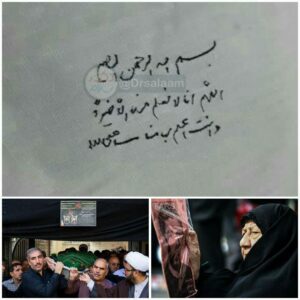 @Drsalaam
بسم الله الرحمن الرحیم
اللهم انا لا نعلم منه الا خیرا
و انت اعلم به منا